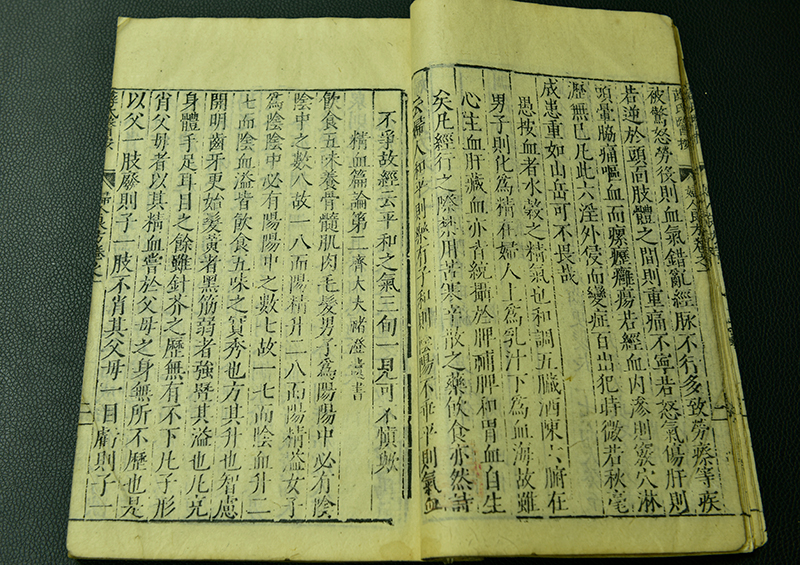 被驚怒勞役則血氣錯亂經脉不行多致勞瘵等疾
若逆於頭面肢體之間則重痛不寧若怒氣傷肝則
頭暈脇痛嘔血而瘰癧癰瘍若經血內滲則竅穴淋
瀝無已凡此六淫外侵而變症百出犯時微若秋毫
成患重如山岳可不畏哉
愚按血者水穀之精氣也和調五臟洒陳六腑在
男子則化為精在婦人上為乳汁下為血海故雖
心生血肝藏血亦皆統攝於脾補脾和胃血自生
矣凡經行之際禁用苦寒辛散之藥飲食亦然詩
云婦人和平則樂有子和則陰陽不乖平則氣血
不爭故經云平和之氣三旬一見可不慎歟
精血篇論第二齊大夫褚澄遺書
飲食五味養骨髓肌肉毛髮男子為陽陽中必有陰
陰中之數八故一八而陽精升二八而陽精溢女子
為陰陰中必有陽陽中之數七故一七而陰血升二
七而陰血溢皆飲食五味之實秀也方其升也智慮
開明齒牙更始髮黃者黑筋弱者強暨其溢也凡充
身體手足耳目之餘雖針芥之瀝無有不下凡子形
肖父母者以其精血嘗於父母之身無所不歷也是
以父一肢廢則子一肢不肖其父母一目虧則子一